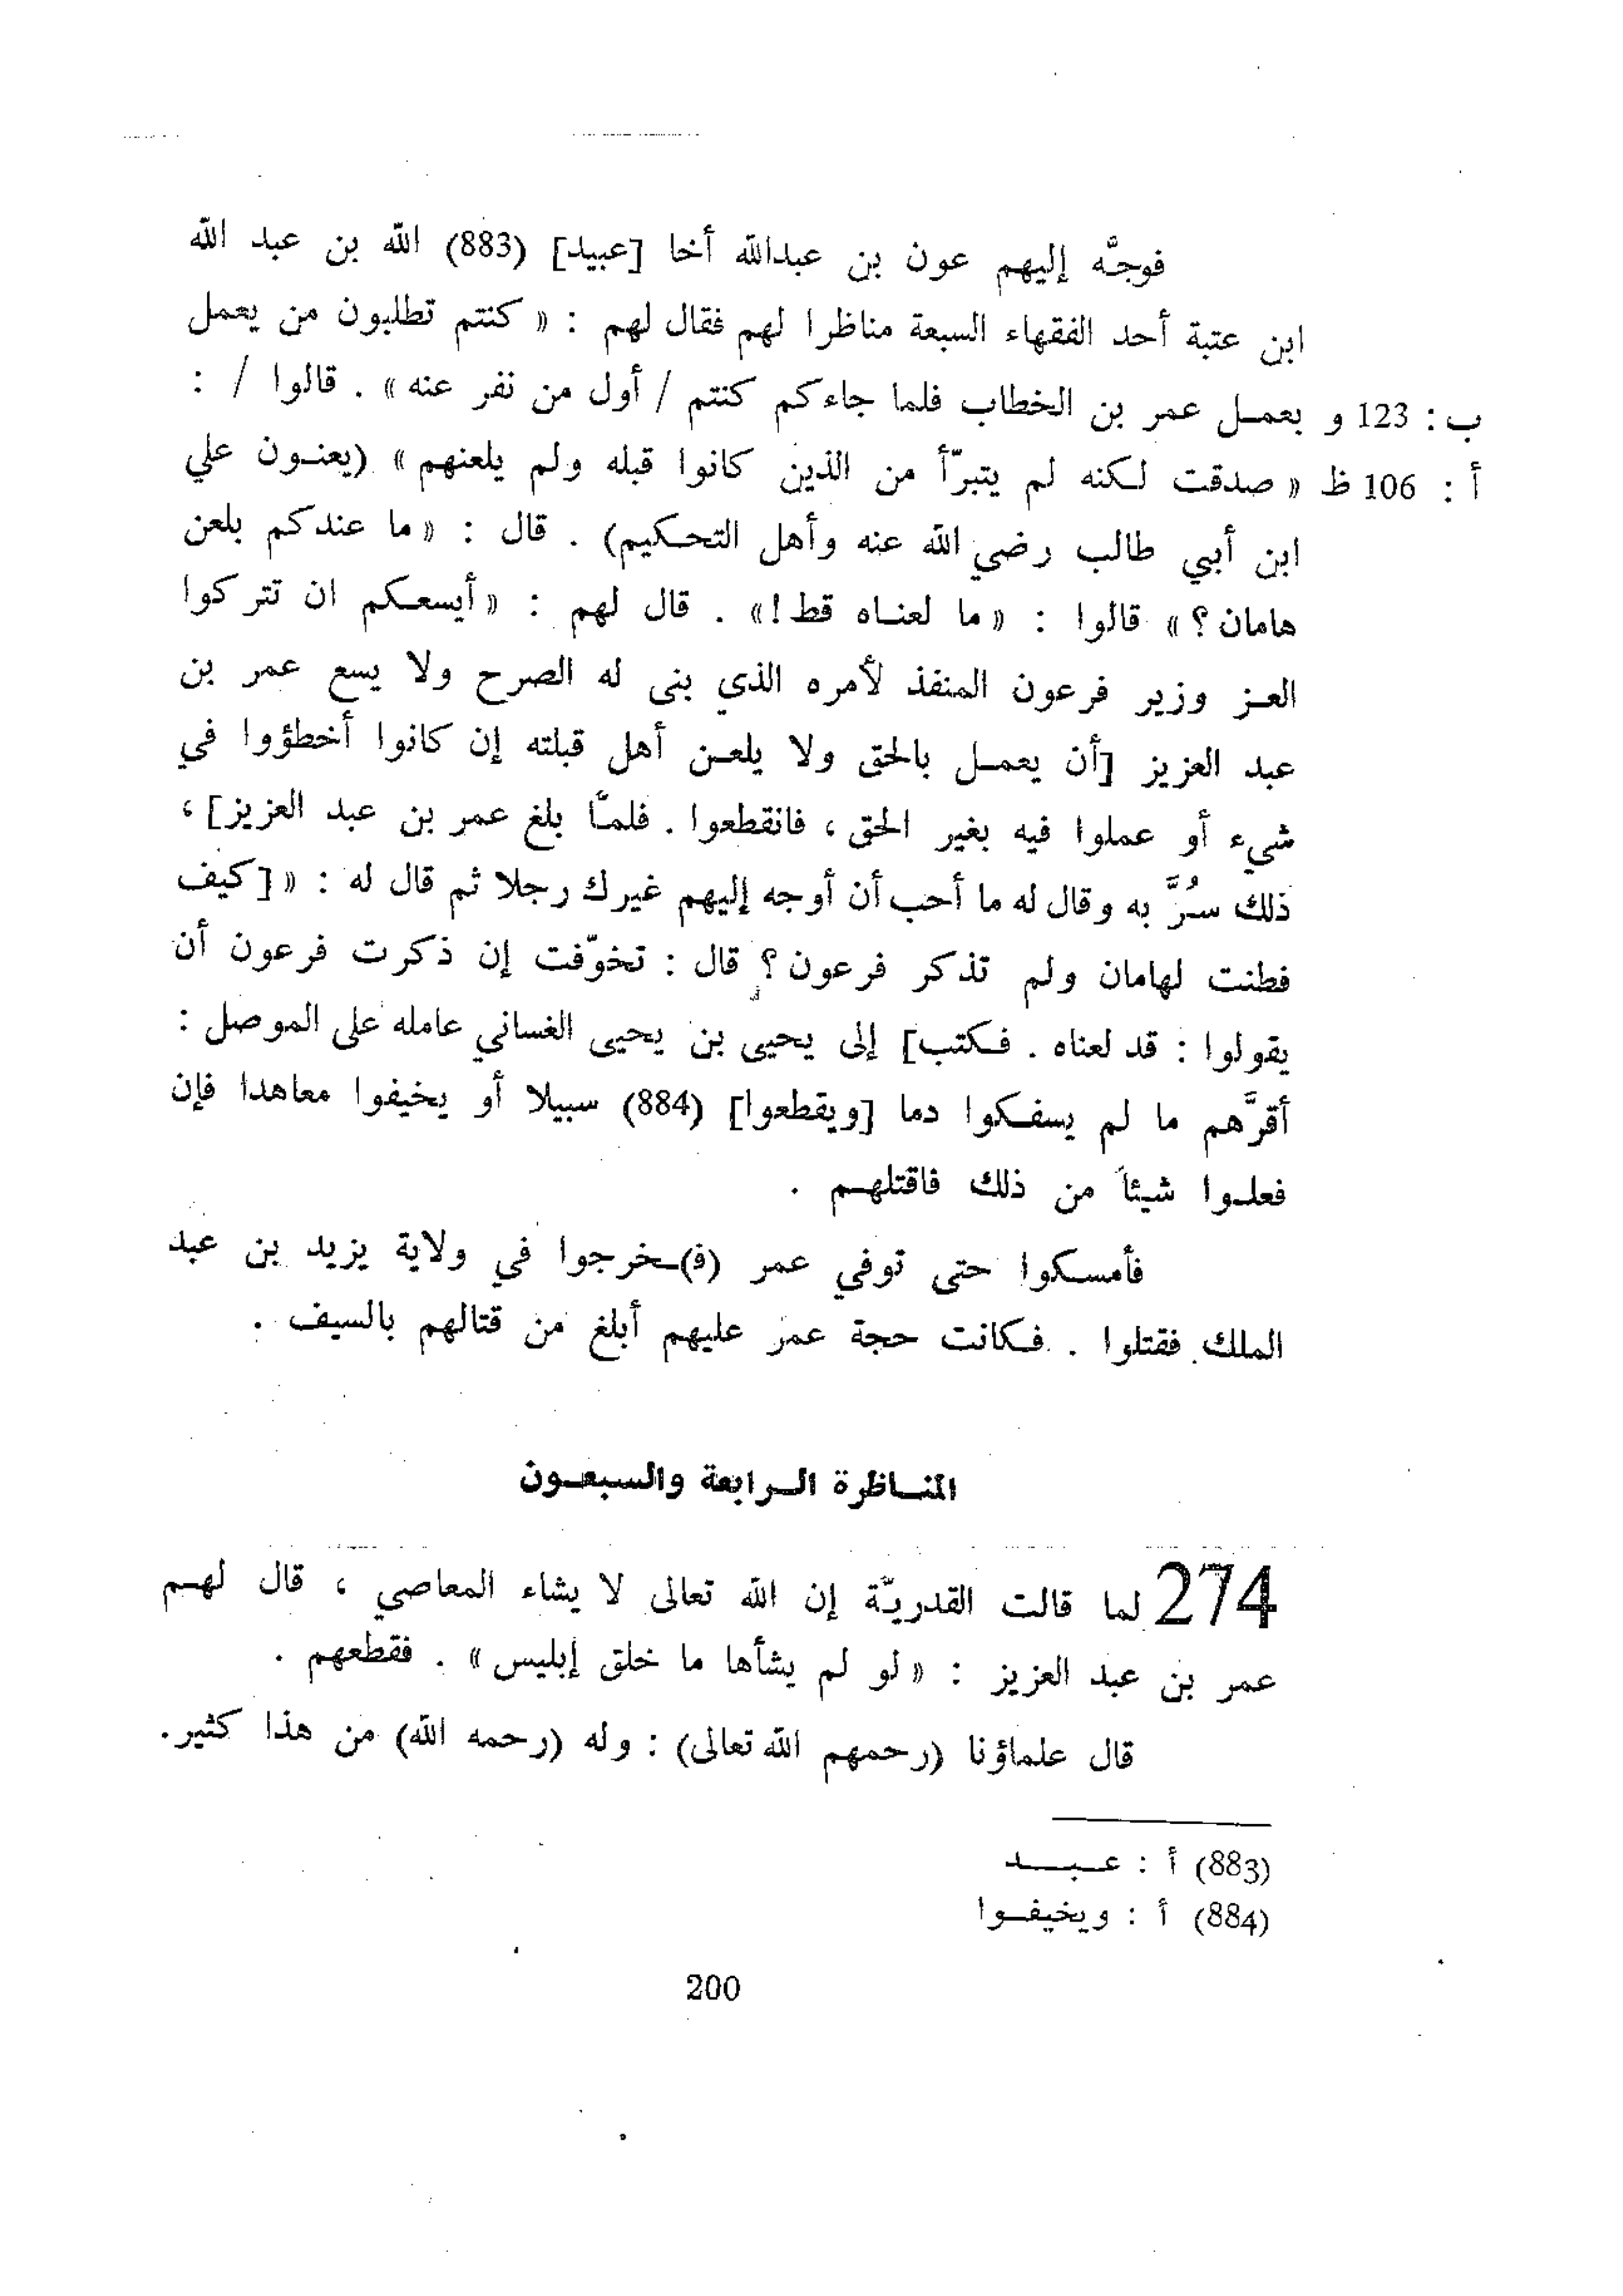 فوجَّه إليهم عون بن عبدالله أخا [عبيد] (883) الله بن عبد الله
ابن عتبة أحد الفقهاء السبعة مناظرا لهم فقال لهم : « كنتم تطلبون من يعمل
ب : 123 و بعمـل عمر بن الخطاب فلما جاءكم كنتم / أول من نفر عنه » . قالوا / :
أ : 106 ظ « صدقت لـكنه لم يتبرّأ من الذين كانوا قبله ولم يلعنهم » (يعنـون علي
ابن أبي طالب رضي الله عنه وأهل التحـكيم) . قال : « ما عندكم بلعن
هامان ؟ » قالوا : « ما لعنـاه قط ! » . قال لهم : « أيسعـكم ان تتركوا
العـز وزير فرعون المنفذ لأمره الذي بنى له الصرح ولا يسع عمر بن
عبد العزيز [أن يعمـل بالحق ولا يلعـن أهل قبلته إن كانوا أخطؤوا في
شيء أو عملوا فيه بغير الحق ، فانقطعوا . فلمّا بلغ عمر بن عبد العزيز] ،
ذلك سُرَّ به وقال له ما أحب أن أوجه إليهم غيرك رجلا ثم قال له : « [كيف
فطنت لهامان ولم تذكر فرعون ؟ قال : تخوّفت إن ذكرت فرعون أن
يقولوا : قد لعناه . فـكتب] إلى يحيى بن يحيى الغساني عامله على الموصل :
أقرَّهم ما لم يسفـكوا دما [ويقطعوا] (884) سبيلا أو يخيفوا معاهدا فإن
فعلـوا شيئاً من ذلك فاقتلهـم .
فأمسـكوا حتى توفي عمر (فـ)ـخرجوا في ولاية يزيد بن عبد
الملك فقتلوا . فـكانت حجة عمر عليهم أبلغ من قتالهم بالسيف .
المنـاظرة الـرابعة والسبعـون
274 لما قالت القدريّة إن الله تعالى لا يشاء المعاصي ، قال لهـم
عمر بن عبد العزيز : « لو لم يشأها ما خلق إبليس » . فقطعهم .
قال علماؤنا (رحمهم الله تعالى) : وله (رحمه الله) من هذا كثير.
(883) أ : عـبـــد
(884) أ : ويخيفـوا
200